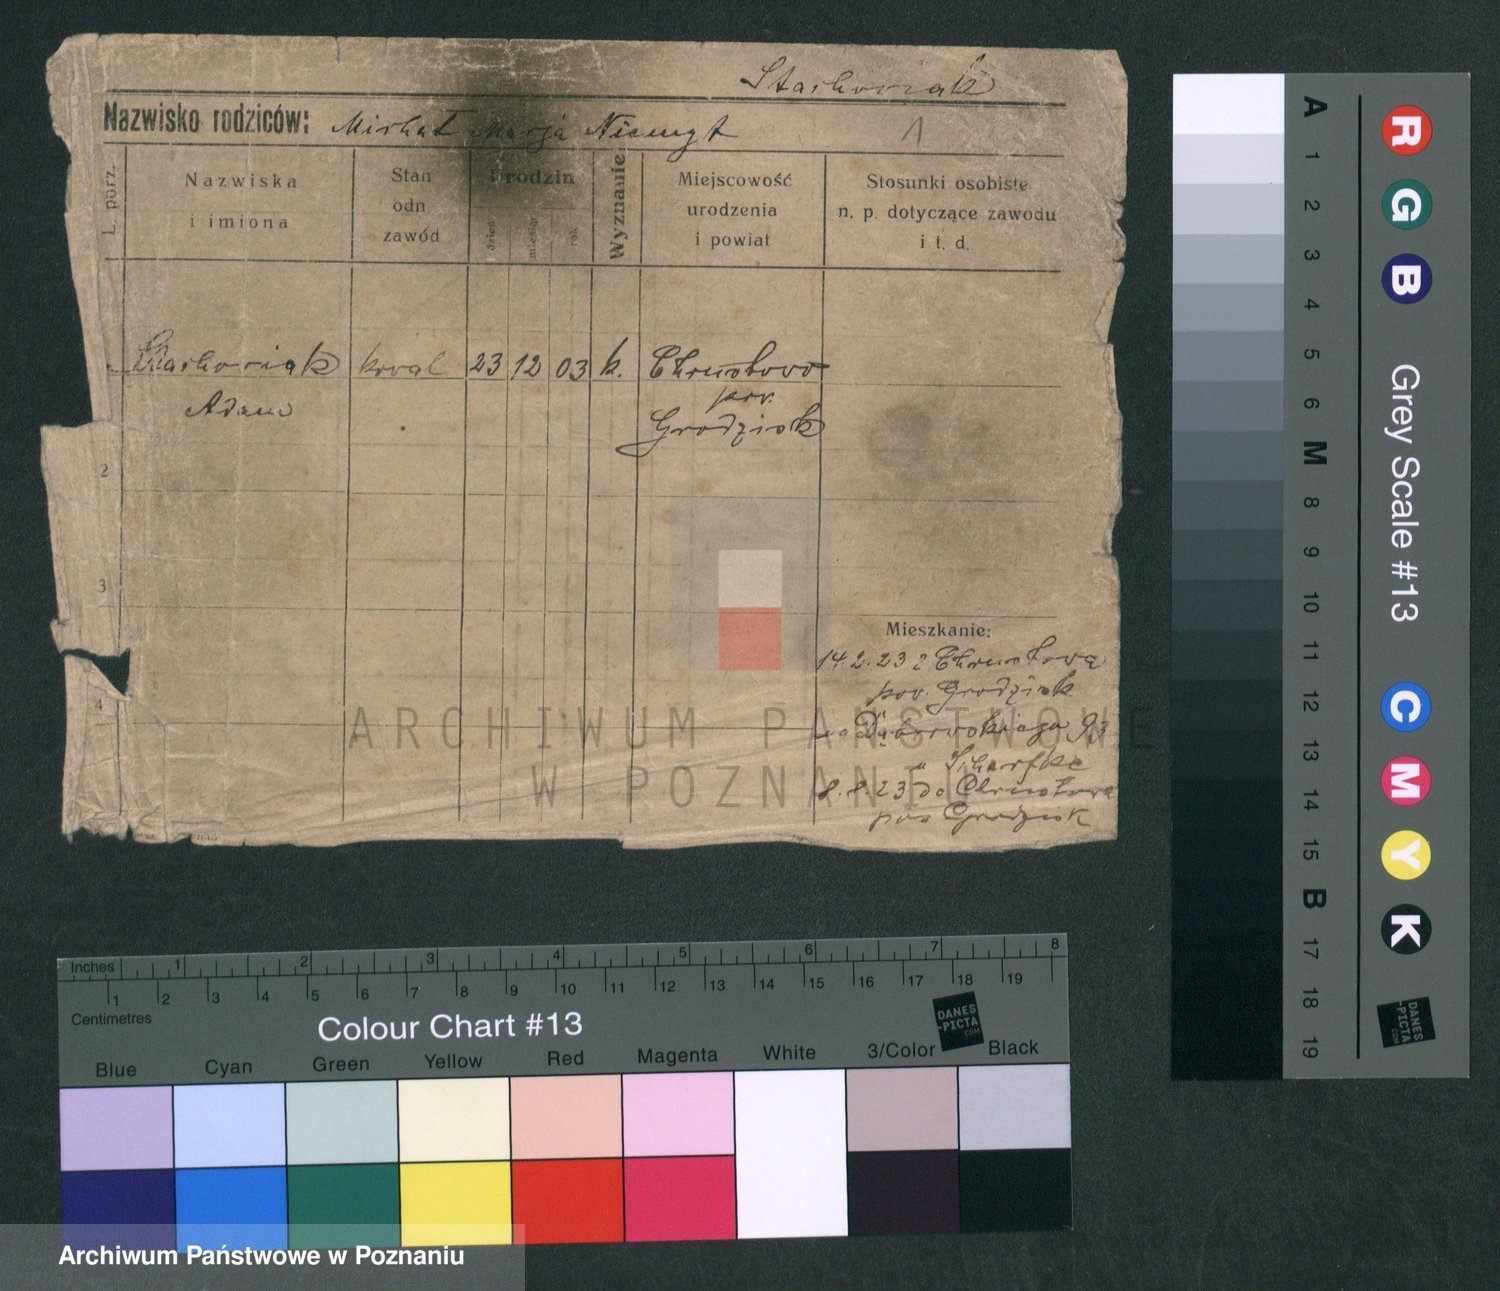 Stachowiak
Nazwisko rodziców: Michał Marja Niemyt
L. porz.
Nazwiska
i imiona
Stan
odn.
zawód
Urodzin
dzień
miesiąc
rok
Wyznanie
Miejscowość
urodzenia
i powiat
Stosunki osobiste
n. p. dotyczące zawodu
i t. d.
Stachowiak kowal 23 12 03 k. Chrustowo
pow.
Adam
Grodzisk
2
3
4
Mieszkanie:
14.2.23 z Chrustowa
pow. Grodzisk
Dąbrowskiego 93
" Scharfke
8.8.23 do Chrustowa
pow Grodzisk
ARCHIWUM PAŃSTWOWE
W POZNANIU
Inches 1 2 3 4 5 6 7 8
1 2 3 4 5 6 7 8 9 10 11 12 13 14 15 16 17 18 19
Centimetres
Colour Chart #13
DANES
-PICTA
.COM
Blue Cyan Green Yellow Red Magenta White 3/Color Black
Archiwum Państwowe w Poznaniu
A 1 2 3 4 5 6 M 8 9 10 11 12 13 14 15 B 17 18 19
R G B
Grey Scale #13
C M Y K
DANES
-PICTA
.COM